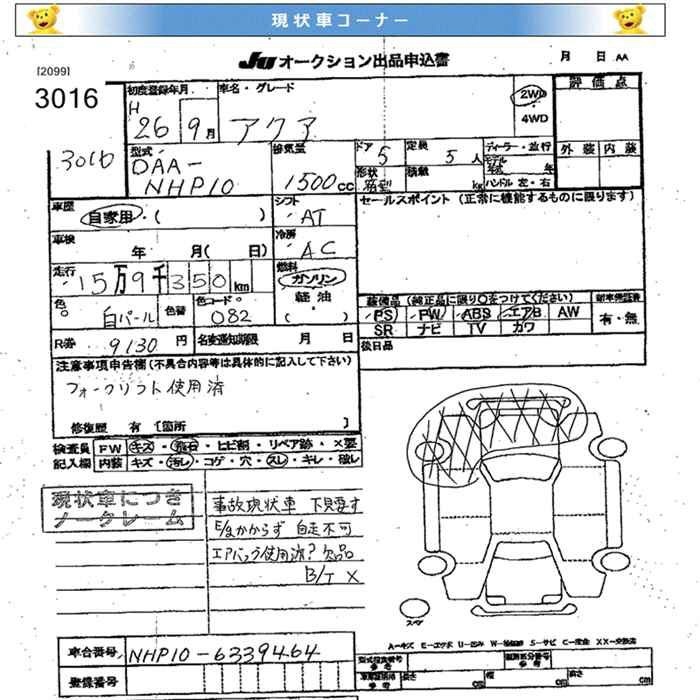 現状車コーナー
JU オークション出品申込書
月 日 AA
[2099]
3016
初度登録年月 車名・グレード
H 26 9月 アクア
2WD
4WD
評価点
外装 内装
3016
型式 DAA-
NHP10
排気量
1500cc
ドア 5
定員 5人
形状 箱型
積載 kg
ディーラー・並行
モデル年式 年
ハンドル 左・右
車歴
自家用・( )
シフト AT
セールスポイント (正常に機能するものに限ります)
車検 年 月( 日)
冷房 AC
走行 15万9千350km
燃料
ガソリン
軽油・
( )
色 白パール 色替 色コード 082
装備品(純正品に限り○をつけてください)
新車保証書
PS PW ABS エアB AW
有・無
SR ナビ TV カワ
R券 9130円 名変通知期限 月 日
後日品
注意事項申告欄(不具合内容等は具体的に記入して下さい)
フォークリフト使用済
修復歴 有 [箇所 ]
検査員 FW キズ・飛石・ヒビ割・リペア跡・×要
記入欄 内装 キズ・汚レ・コゲ・穴・スレ・キレ・破レ
現状車につき
ノークレーム
事故現状車 下見要す
E/gかからず 自走不可
エアバック使用済? 欠品
B/T X
スペア
A-キズ E-エクボ U-凹み W-補修跡 S-サビ C-腐食 XX-交換済
車台番号 NHP10-6339464
登録番号
型式指定番号 参考
類別区分番号 参考
長さ cm 幅 cm 高さ cm